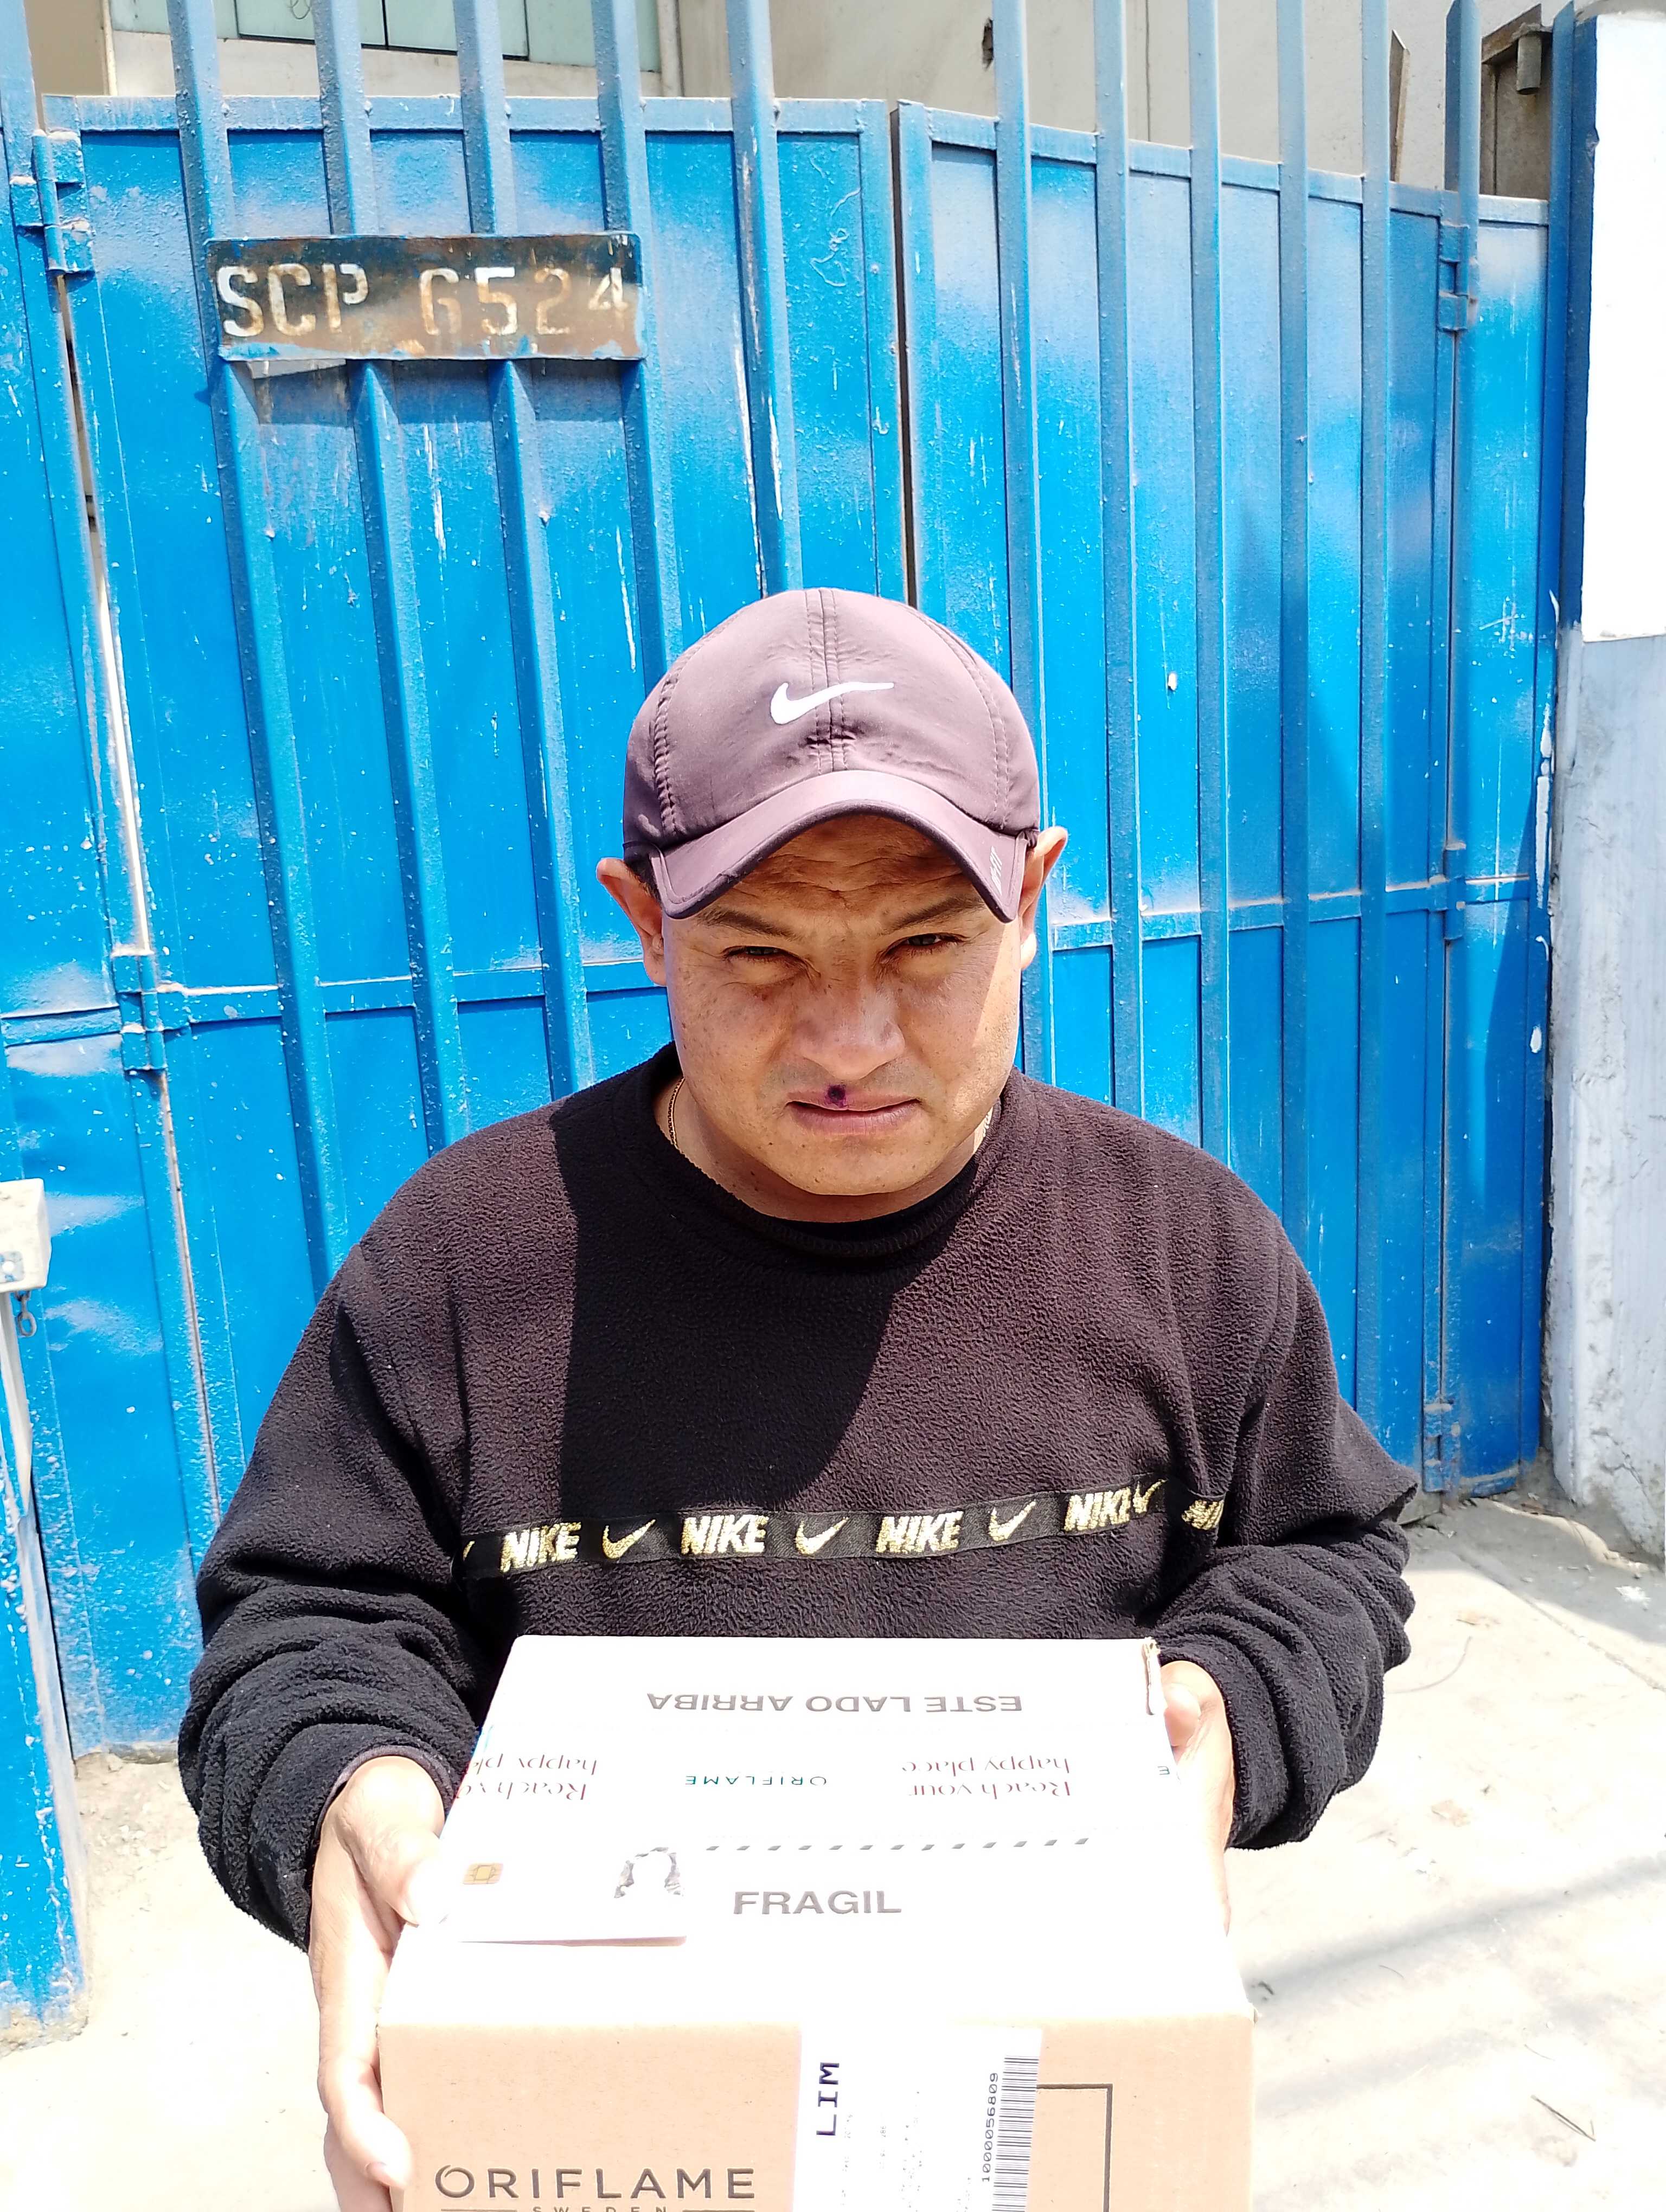 SCP 6524
NIKE NIKE NIKE NIKE NI
ESTE LADO ARRIBA
Reach your happy place
ORIFLAME
Reach your happy place
FRAGIL
LIM
1000056809
ORIFLAME
SWEDEN